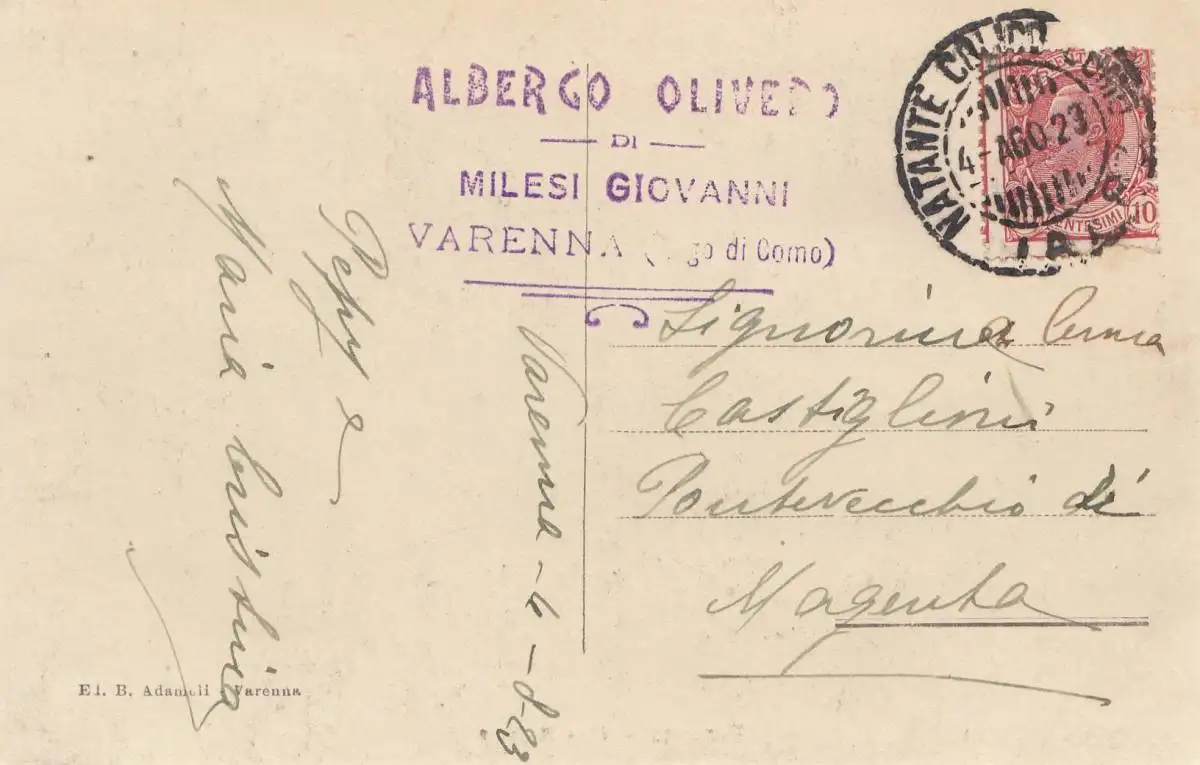 ALBERGO OLIVEDO
DI
MILESI GIOVANNI
VARENNA (Lago di Como)
NATANTE COLICO COMO
4 - AGO 23
CENTESIMI 10
Signorina
Castiglioni
Pontevecchio di
Magenta
Varenna - 4 - 8 - 23
Peppy e
Maria Cristina
Ed. B. Adamoli - Varenna